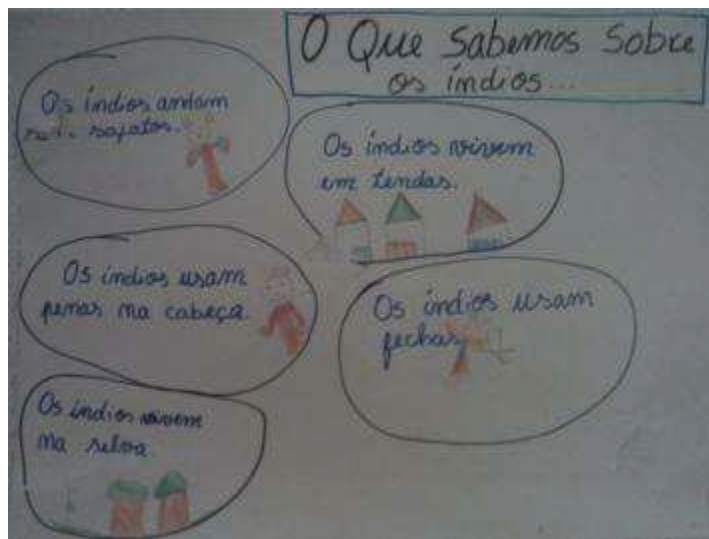 O Que Sabemos Sobre
os índios...
Os índios andam
sapatos.
Os índios vivem
em tendas.
Os índios usam
penas na cabeça
Os índios usam
fechas
Os índios vivem
na selva